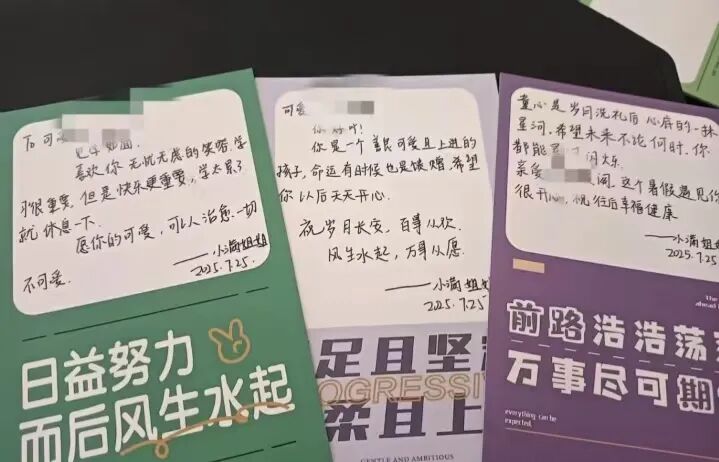 To 可爱
见字如面
喜欢你无忧无虑的笑容,学
习很重要,但是快乐更重要,学太累了
就休息一下.
愿你的可爱,可以治愈一切
不可爱.
——小满姐姐
2025.7.25.
日益努力
而后风生水起
可爱
你好呀!
你是一个善良可爱且上进的
孩子,命运有时候也是馈赠.希望
你以后天天开心.
祝岁月长安,百事从欢.
风生水起,万事从愿.
——小满姐姐
2025.7.25
足且坚定
PROGRESSIV
柔且上
GENTLE AND AMBITIOUS
童心是岁月洗礼后心底的一抹
星河.希望未来不论何时,你
都能
亲爱 闹,这个暑假遇见你
很开心,祝往后幸福健康
——小满姐姐
2025.7.25
The
ahead
前路浩浩荡荡
万事尽可期
everything can be
expected.